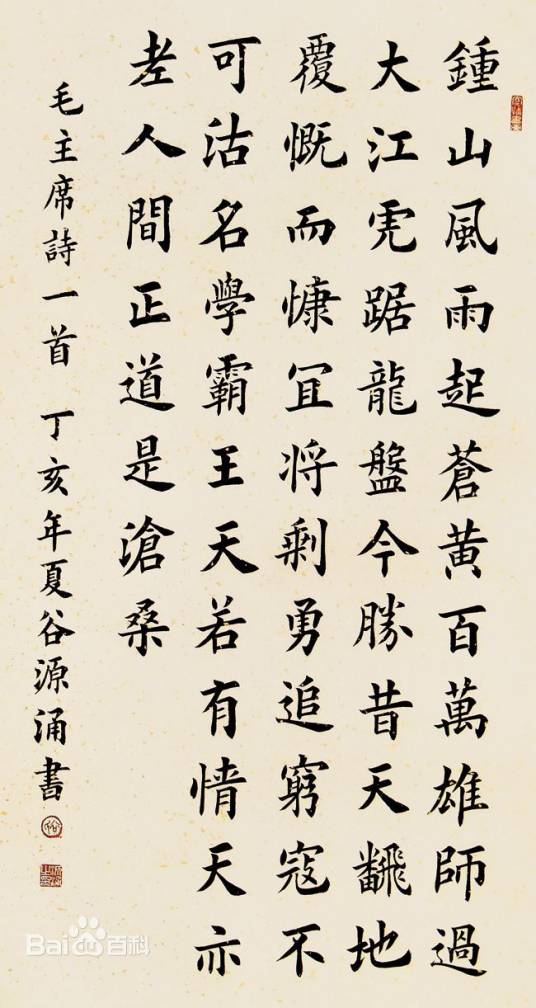 鍾山風雨起蒼黄百萬雄師過
大江虎踞龍盤今勝昔天飜地
覆慨而慷宜将剩勇追窮寇不
可沽名學霸王天若有情天亦
老人間正道是滄桑
毛主席詩一首 丁亥年夏谷源涌書
Bai百科